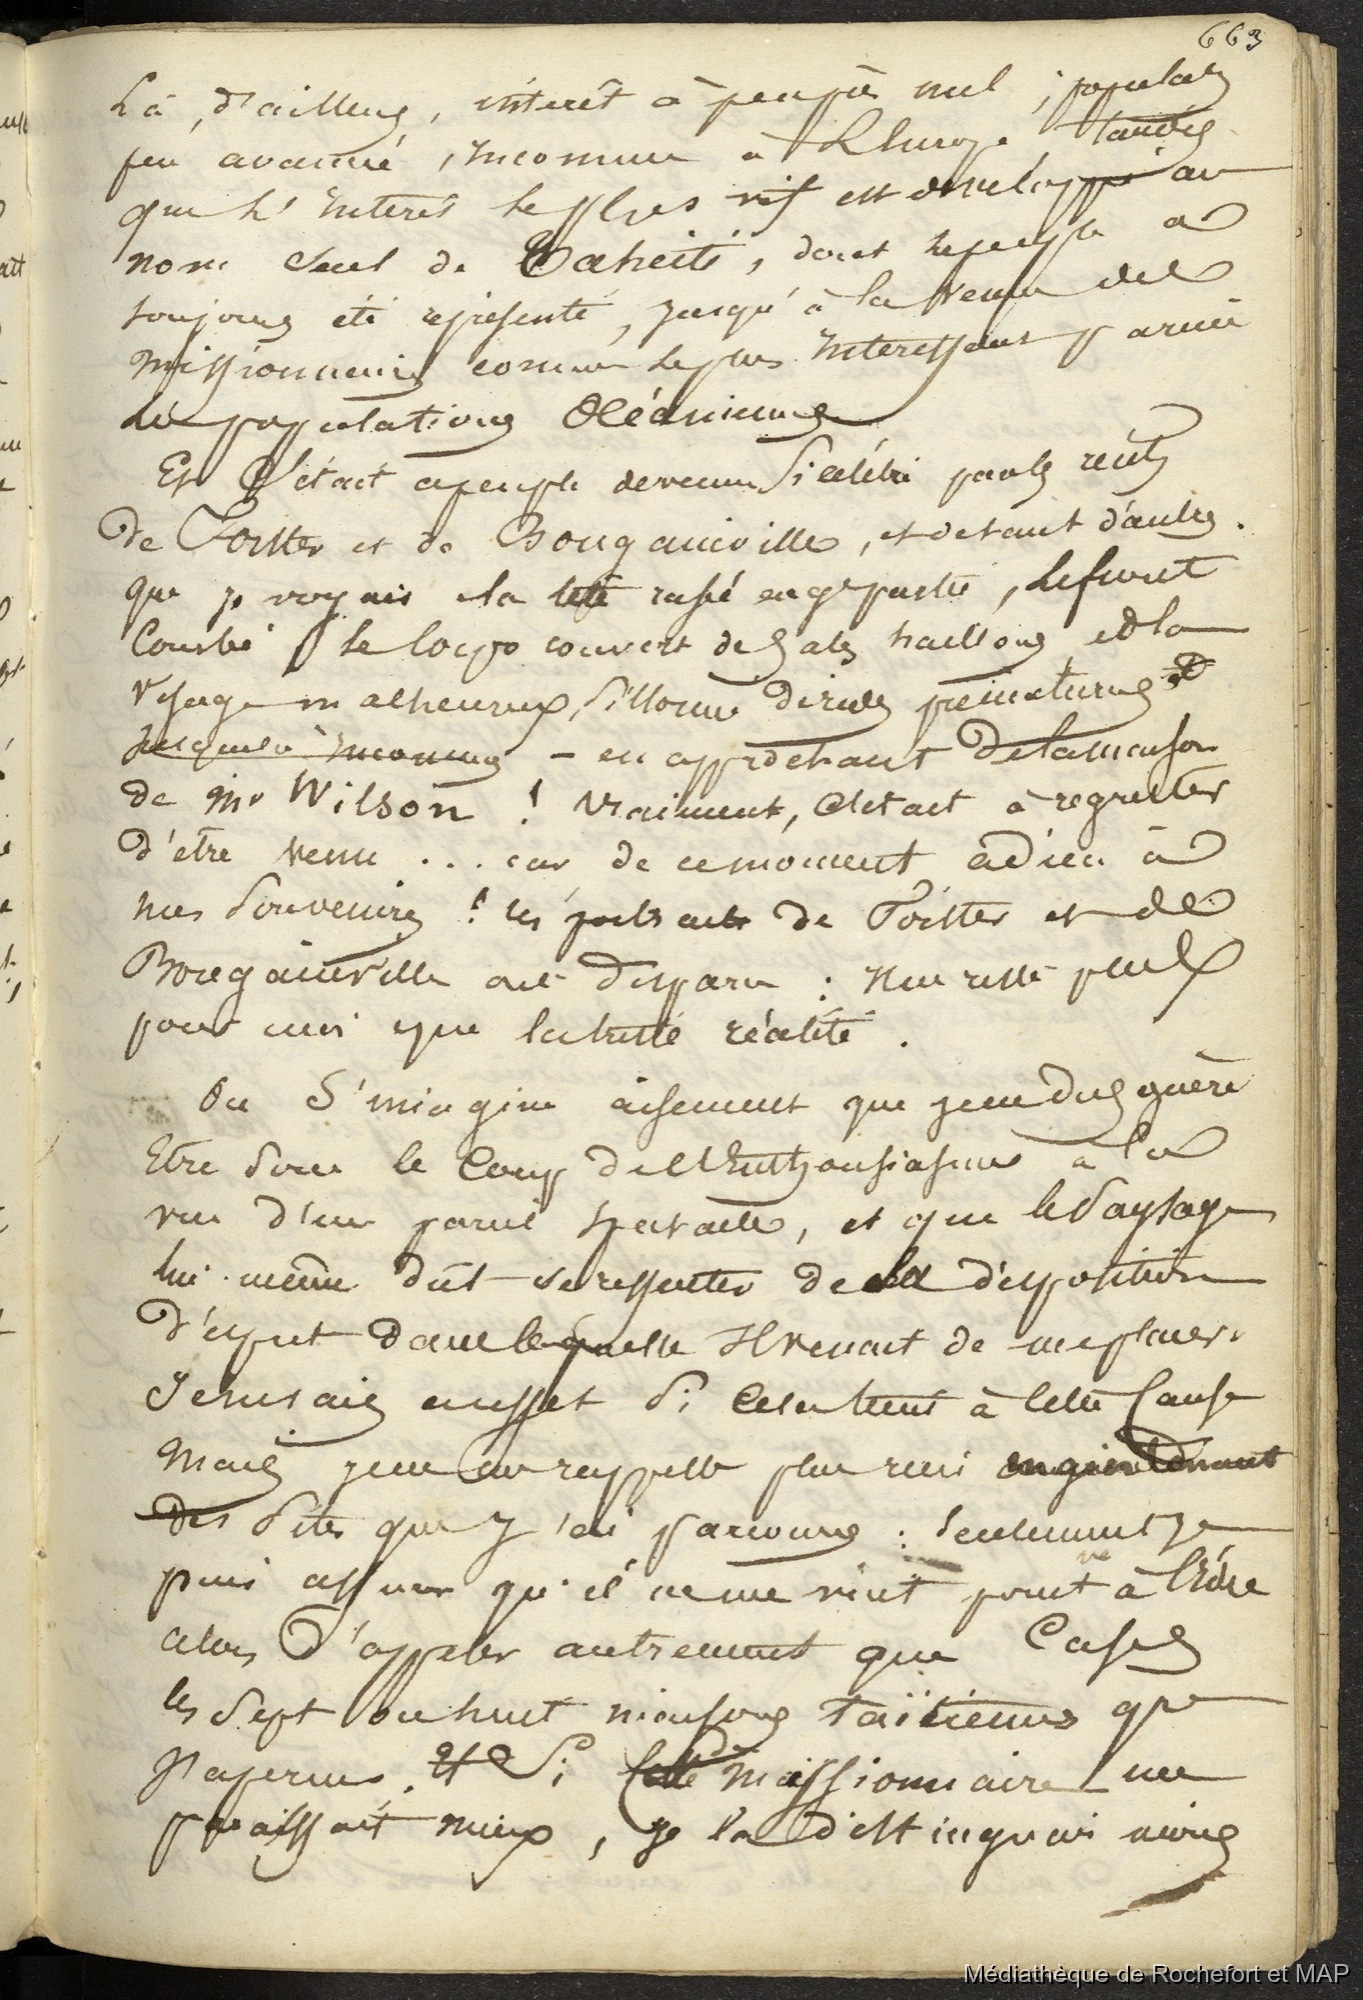 663
Là, d'ailleurs, interêt à peuprès nul, populations
peu avancée, inconnue à L'Europe, tandis
que L'interêt le plus vif est développé au
nom seul de Taheiti, dont le peuple a
toujours été représenté, jusqu'à la venue des
missionnaires comme le plus interessant parmi
les populations Océaniennes
Et C'était ce peuple devenu si célèbre par les récits
de Forster et de Bougainville, et de tant d'autres.
que je voyais la tête rasée en gde partie, le front
Courbé, le corps couvert de sales haillons et le
visage malheureux, sillonné de rides prématurées
jusque là inconnues – en approchant de la maison
de Mr Wilson ! Vraiment, C'était à regretter
d'être venu ... car de ce moment adieu à
mes souvenirs ! les portraits de Forster et de
Bougainville ont disparu : Il ne reste plus
pour moi que la triste réalité.
On s'imagine aisement que je ne dus guère
Etre sous le Coup de l'Enthousiasme à la
vue d'un pareil spectacle, et que le Paysage
lui-même dût se ressentir de la disposition
d'esprit dans laquelle Il venait de me placer.
Je ne sais en effet si Cela tient à Cette Cause
Mais je ne me rappelle plus rien maintenant
des sites que j'ai parcourus : seulement je
puis assurer qu'il ne me vint point à l'idée
alors d'appeler autrement que Cases
les sept ou huit maisons Taïtiennes que
J'aperçus. Et si Celle missionnaire me
paraissait mieux, je la distinguai moins
Médiathèque de Rochefort et MAP